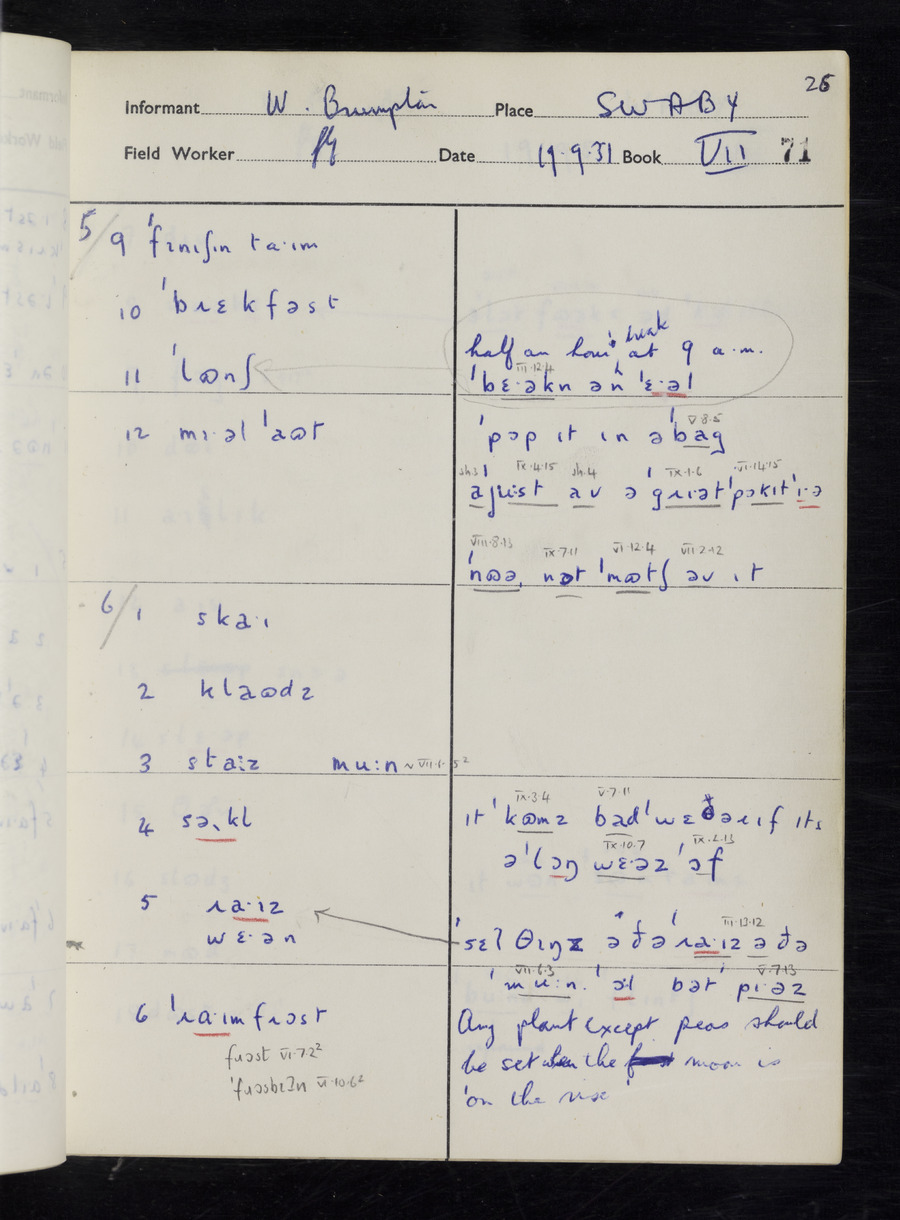 26
Informant W. Brumpton Place SWABY
Field Worker Date 19.9.51 Book VII 71
5/ 9 ˈfɪnɪʃɪn taˑɪm
10 ˈbɹɛkfəst
11 ˈlɷnʃ
half an hour break at 9 a.m.
III.12.4
ˈbɛˑəkn ən ˈɛˑəl
12 mɪˑəl ˈaɷt
V.8.5
ˈpɔp ɪt ɪn ə ˈbag
sh.3 IX.4.15 sh.4 IX.1.6 VI.14.15
ajuːst av ə ˈgɹɪət ˈpɔkɪt ˈɪˑə
VIII.8.13 IX.7.11 VI.12.4 VII.2.12
ˈnɷə, nɔt ˈmɷtʃ əv ɪt
6/ 1 skaˑɪ
2 klaɷdz
3 staːz muːn ~ VII.6.
4 sə˞kl
IX.3.4 V.7.11
ɪt ˈkɷmz bad ˈwɛðəɹ ɪf ɪts
IX.10.7 IX.2.13
ə ˈlɔŋ wɛˑəz ˈɔf
5 ɹaˑɪz
wɛˑən
VIII.13.12
ˈsɛʔ θɪŋz ə ðə ˈɹaˑɪz ə ðə
VII.6.3 V.7.13
ˈmuːn. ˈɔːl bət ˈpɪəz
6 ˈɹaˑɪmfɹɔst
fɹɔst VI.7.2²
ˈfɹɔsbɪʔn VI.10.6²
Any plant except peas should
be set when the moon is
'on the rise'